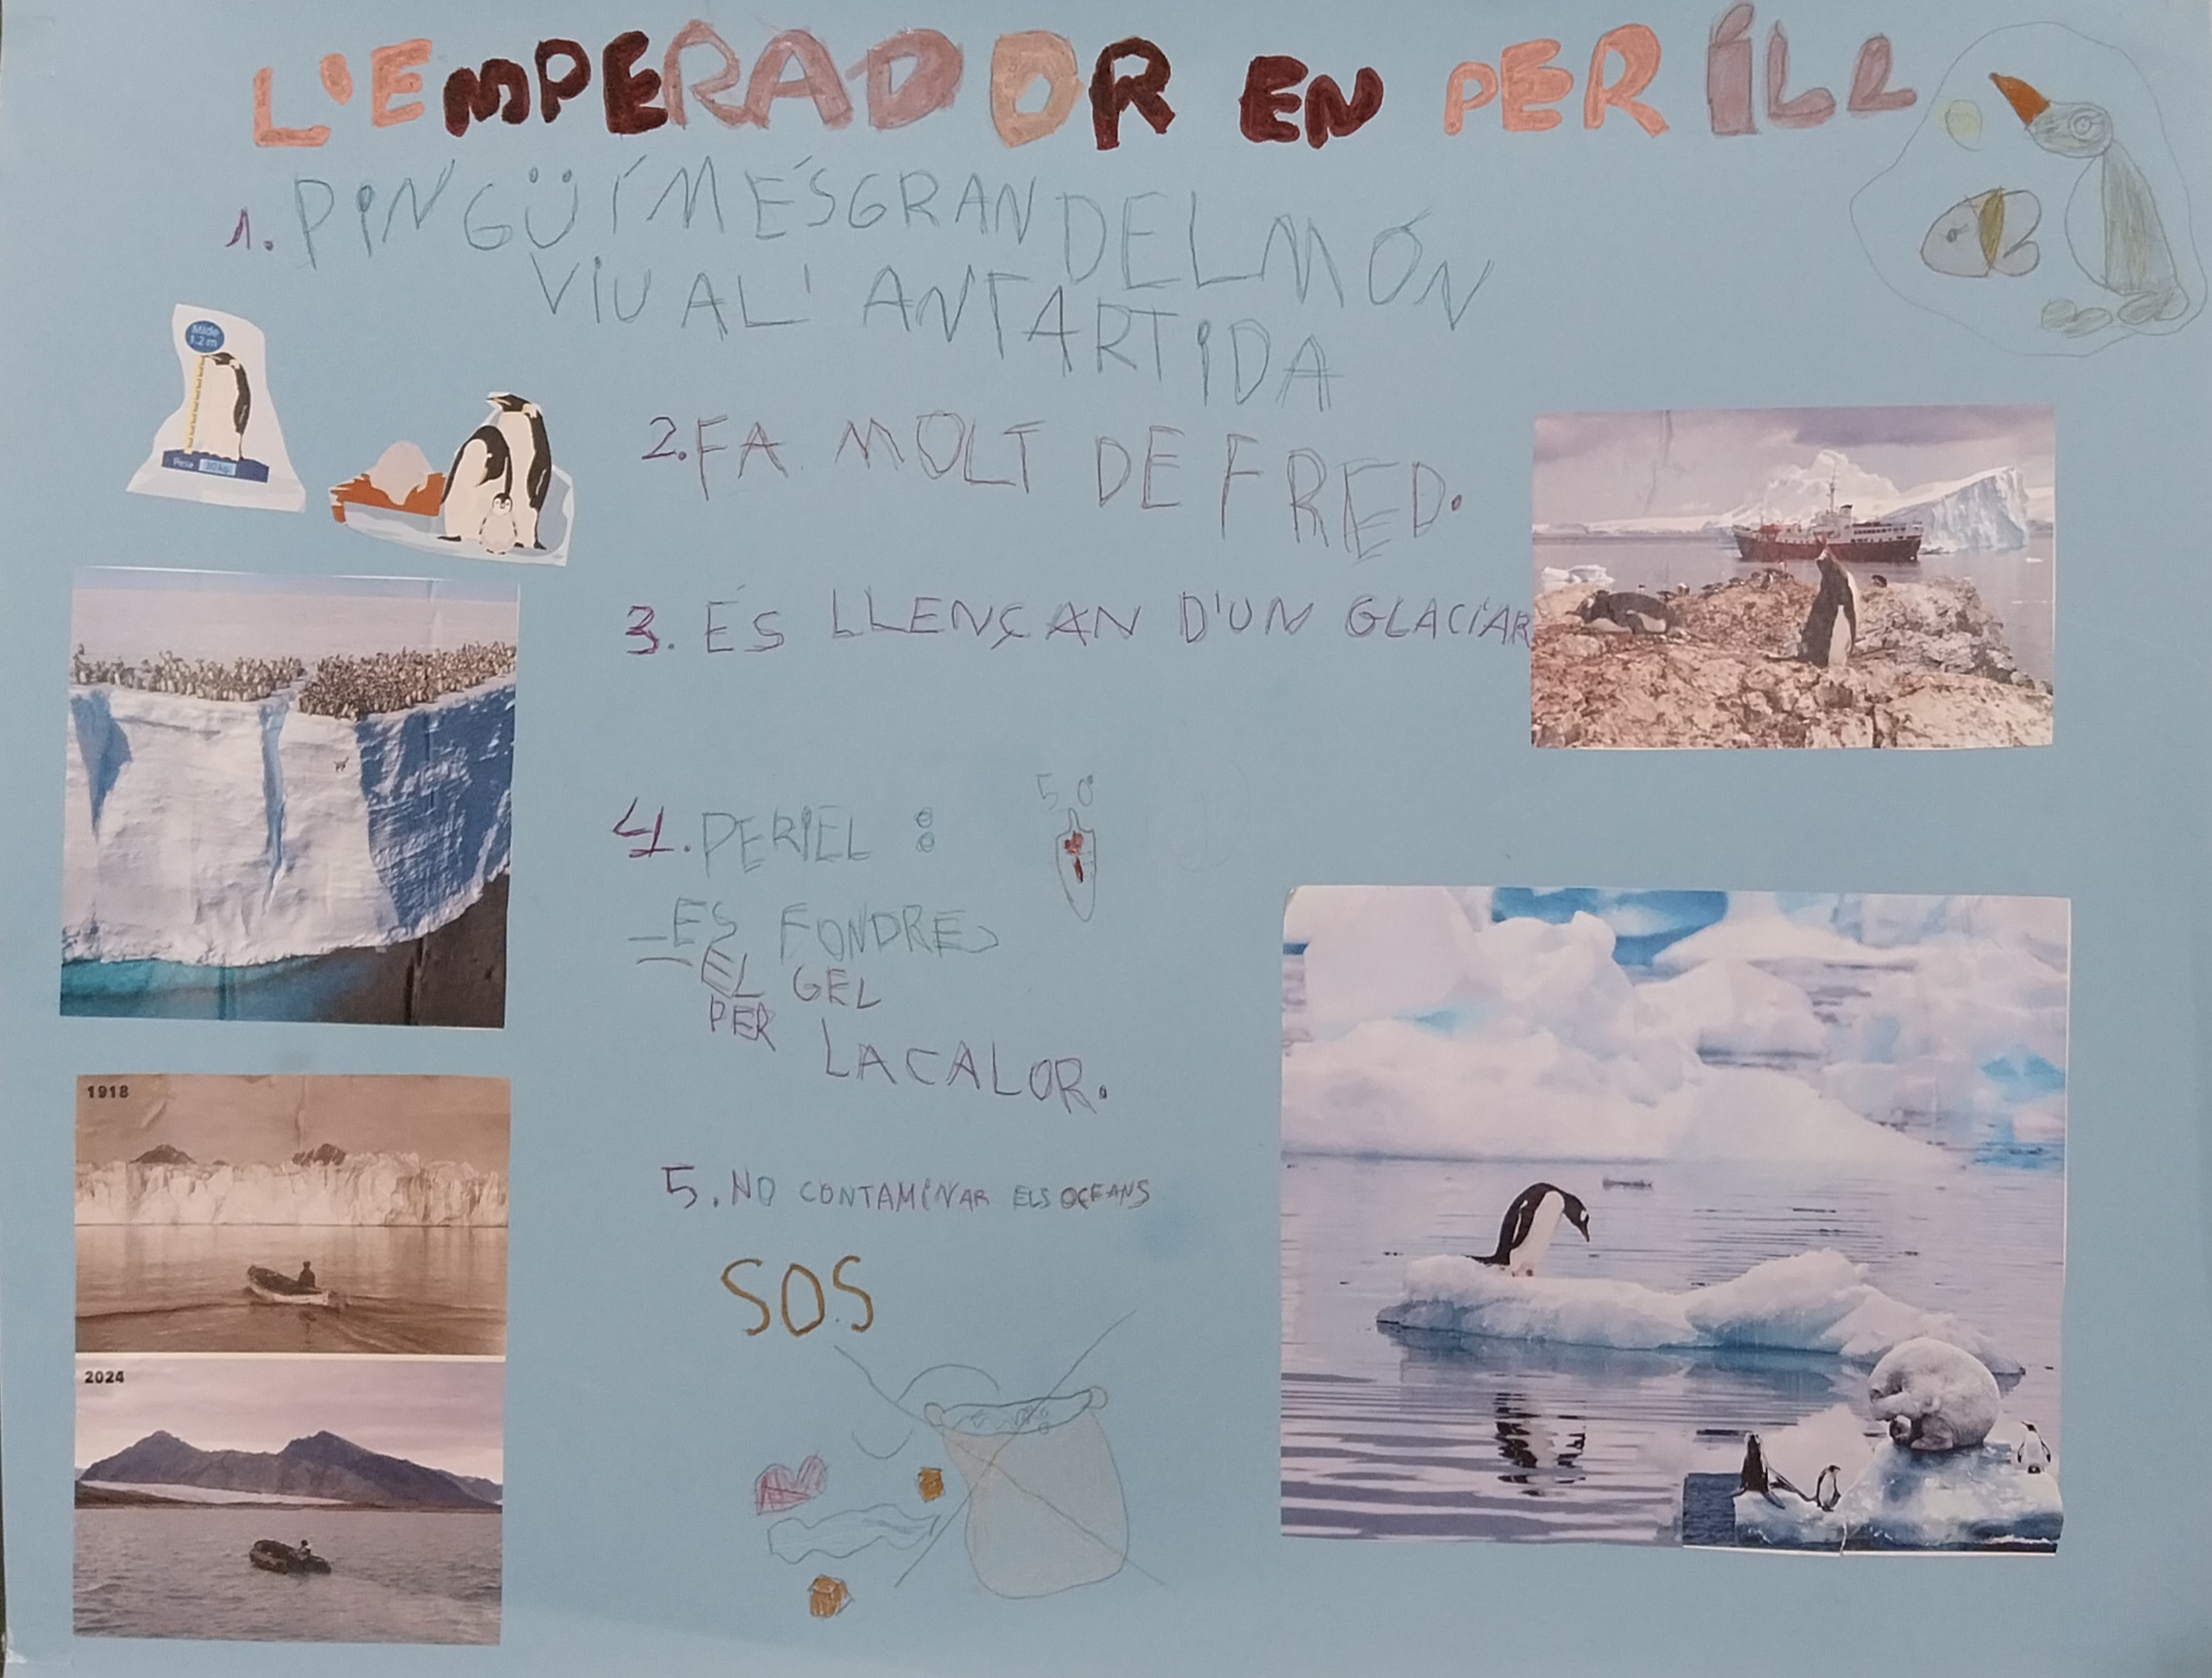 L'EMPERADOR EN PERÍLL
1. PINGÜÍ MÉS GRAN DEL MÓN
VIU A L' ANTARTIDA
Mide
1.2 m
Pesa 30 kg
2. FA MOLT DE FRED.
3. ES LLENÇAN D'UN GLACIAR
50
4. PERIEL :
- ES FONDRE
- EL GEL
PER
LA CALOR.
1918
5. NO CONTAMINAR ELS OCEANS
SOS
2024